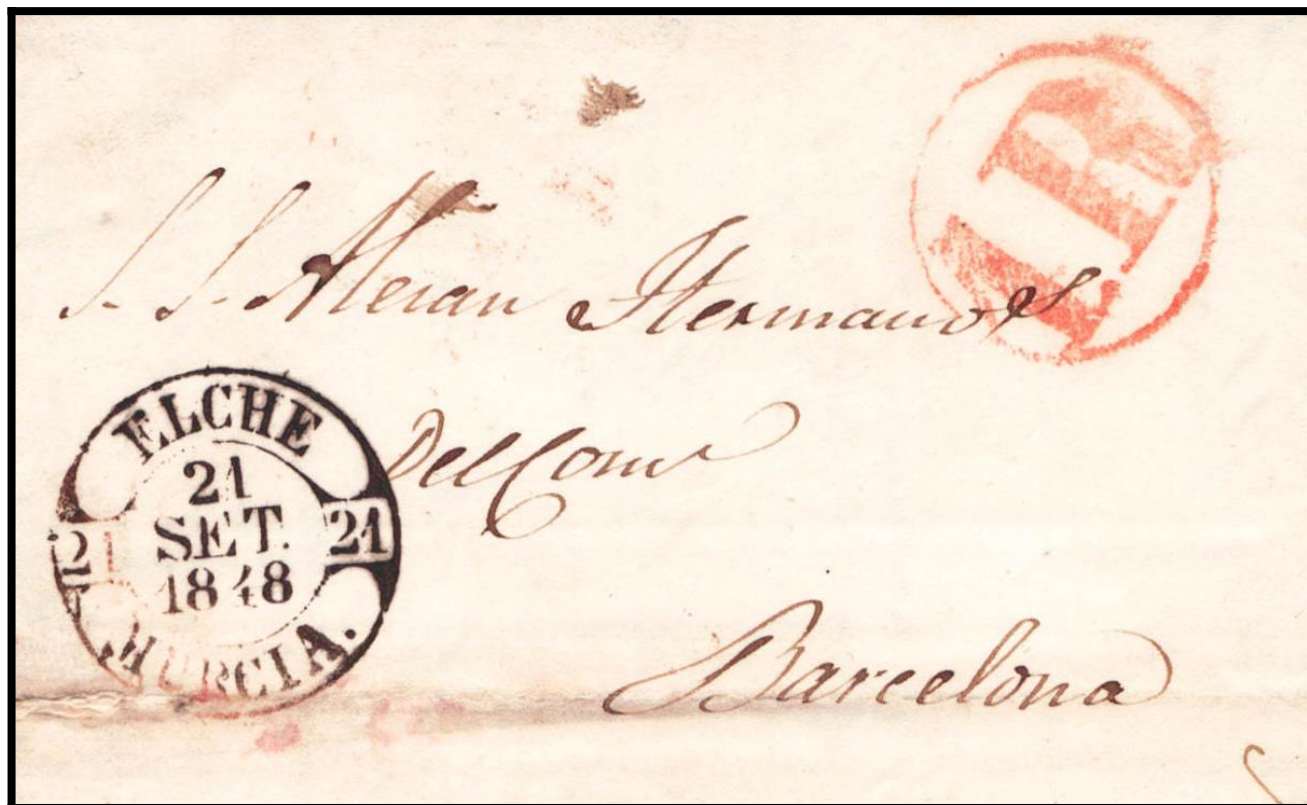 S. S. Aleran Hermanos
Del Com°
Barcelona
ELCHE
21
SET.
1848
21
21
MURCIA.